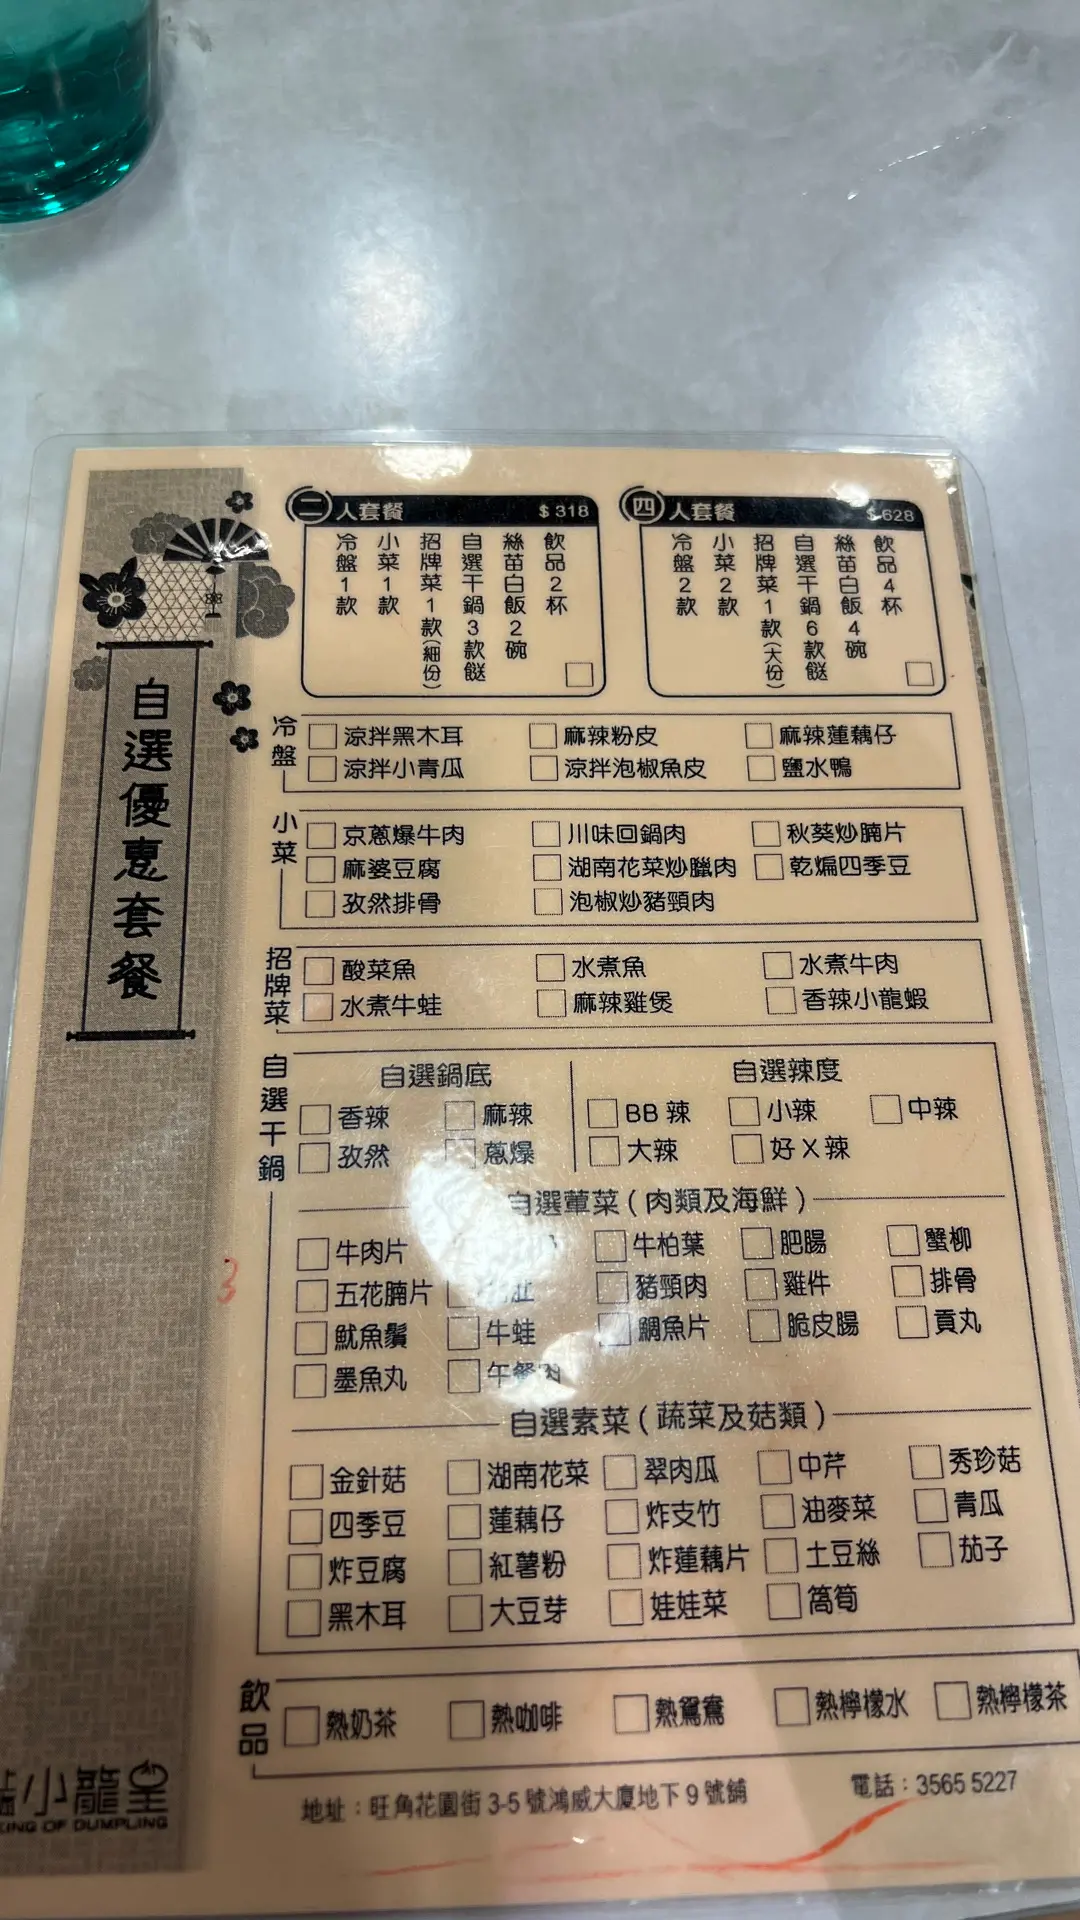 自選優惠套餐
二人套餐 $318
冷盤1款
小菜1款
招牌菜1款(細份)
自選干鍋3款餸
絲苗白飯2碗
飲品2杯
四人套餐 $628
冷盤2款
小菜2款
招牌菜1款(大份)
自選干鍋6款餸
絲苗白飯4碗
飲品4杯
冷盤
涼拌黑木耳 麻辣粉皮 麻辣蓮藕仔
涼拌小青瓜 涼拌泡椒魚皮 鹽水鴨
小菜
京蔥爆牛肉 川味回鍋肉 秋葵炒腩片
麻婆豆腐 湖南花菜炒臘肉 乾煸四季豆
孜然排骨 泡椒炒豬頸肉
招牌菜
酸菜魚 水煮魚 水煮牛肉
水煮牛蛙 麻辣雞煲 香辣小龍蝦
自選干鍋
自選鍋底 自選辣度
香辣 麻辣 BB辣 小辣 中辣
孜然 蔥爆 大辣 好X辣
自選葷菜(肉類及海鮮)
牛肉片 牛柏葉 肥腸 蟹柳
五花腩片 豬頸肉 雞件 排骨
魷魚鬚 牛蛙 鯛魚片 脆皮腸 貢丸
墨魚丸 午餐肉
自選素菜(蔬菜及菇類)
金針菇 湖南花菜 翠肉瓜 中芹 秀珍菇
四季豆 蓮藕仔 炸支竹 油麥菜 青瓜
炸豆腐 紅薯粉 炸蓮藕片 土豆絲 茄子
黑木耳 大豆芽 娃娃菜 萵筍
飲品
熱奶茶 熱咖啡 熱鴛鴦 熱檸檬水 熱檸檬茶
小龍皇
KING OF DUMPLING
地址：旺角花園街3-5號鴻威大廈地下9號舖 電話：3565 5227